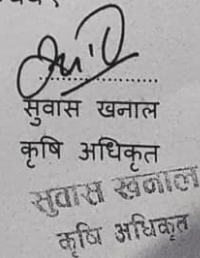 सुवास खनाल
कृषि अधिकृत
सुवास खनाल
कृषि अधिकृत